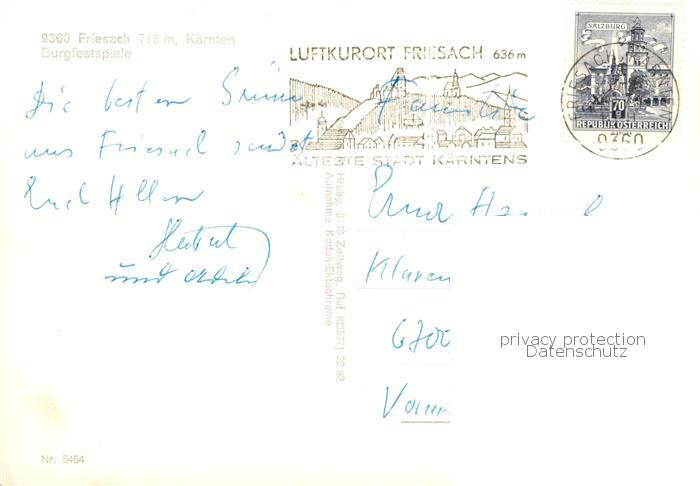 9360 Friesach 718 m, Kärnten
Burgfestspiele
Die besten Grüße
aus Friesach sendet
Euch Allen
Herbert
und
LUFTKURORT FRIESACH 636 m
ÄLTESTE STADT KÄRNTENS
SALZBURG
70
REPUBLIK ÖSTERREICH
FRIESACH
9360
Familie
Klaren
6700
Hruby, 8740 Zeltweg, Ruf (03577) 22 92
Aufnahme Kodak-Ektachrome
privacy protection
Datenschutz
Nr. 5454